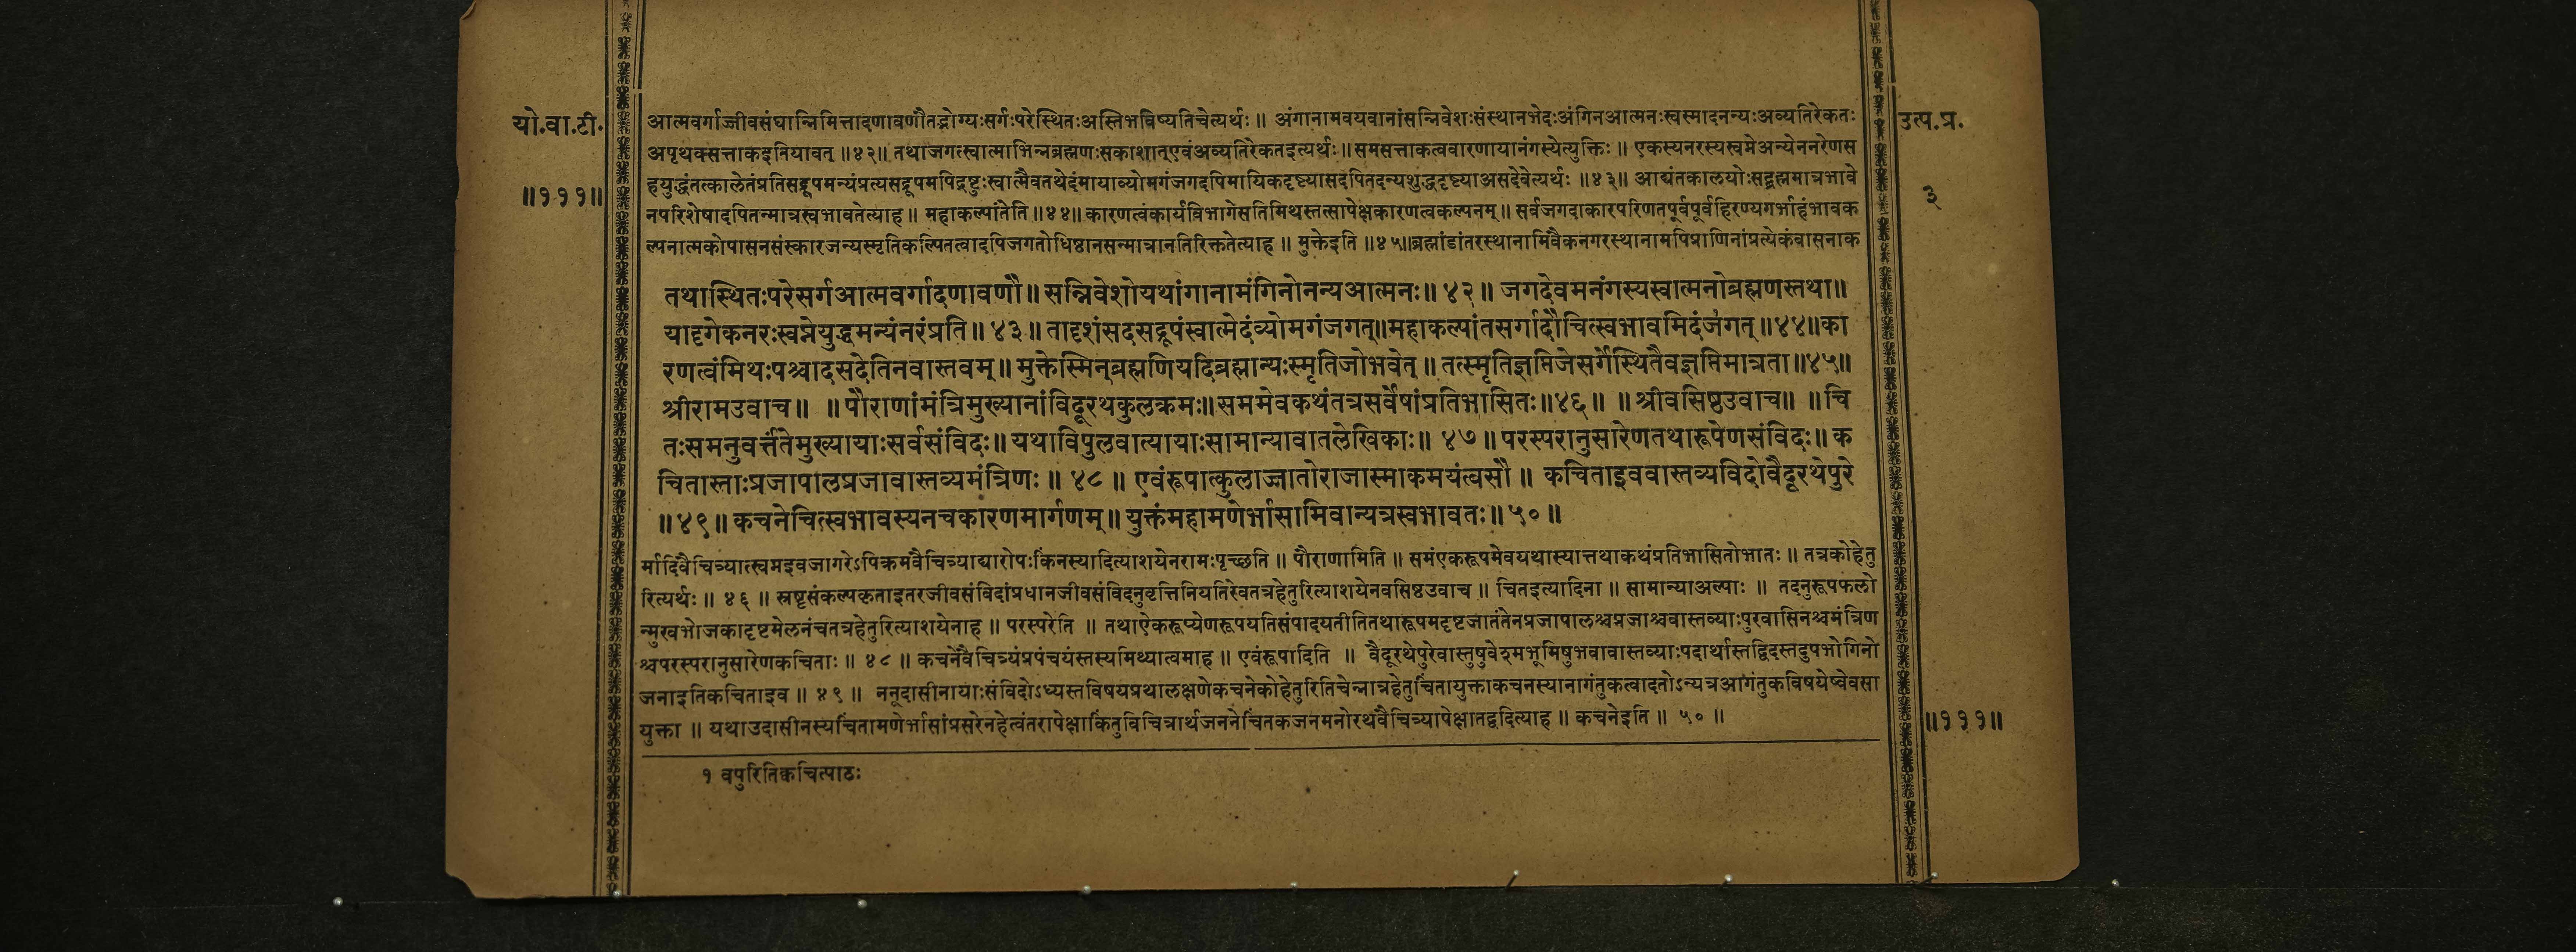 यो.वा.टी.
॥१११॥
उत्प.प्र.
३
आत्मवर्गाज्जीवसंघान्निमित्तादणावणौतद्भोग्यःसर्गःपरेस्थितःअस्तिभविष्यतिचेत्यर्थः ॥ अंगानामवयवानांसन्निवेशःसंस्थानभेदःअंगिनआत्मनःस्वस्मादनन्यःअव्यतिरेकतः
अपृथक्सत्ताकइतियावत् ॥४२॥ तथाजगत्स्वात्माभिन्नब्रह्मणःसकाशात्एवंअव्यतिरेकतइत्यर्थः॥समसत्ताकत्ववारणायानंगस्येत्युक्तिः ॥ एकस्यनरस्यस्वप्नेअन्येननरेणस
हयुद्धंतत्कालेतंप्रतिसद्रूपमन्यंप्रत्यसद्रूपमपिद्रष्टुःस्वात्मैवतथेदंमायाव्योमगंजगदपिमायिकदृष्ट्यासदपितदन्यशुद्धदृष्ट्याअसदेवेत्यर्थः ॥४३॥ आद्यंतकालयोःसद्ब्रह्ममात्रभावे
नपरिशेषादपितन्मात्रस्वभावतेत्याह ॥ महाकल्पांतेति ॥४४॥कारणत्वंकार्यविभागेसतिमिथस्तत्सापेक्षकारणत्वकल्पनम् ॥ सर्वजगदाकारपरिणतपूर्वपूर्वहिरण्यगर्भाहंभावक
ल्पनात्मकोपासनसंस्कारजन्यस्मृतिकल्पितत्वादपिजगतोधिष्ठानसन्मात्रानतिरिक्ततेत्याह ॥ मुक्तेइति ॥४५॥ब्रह्मांडांतरस्थानामिवैकनगरस्थानामपिप्राणिनांप्रत्येकंवासनाक
तथास्थितःपरेसर्गआत्मवर्गादणावणौ॥ सन्निवेशोयथांगानामंगिनोनन्यआत्मनः॥ ४२॥ जगदेवमनंगस्यस्वात्मनोब्रह्मणस्तथा॥
यादृगेकनरःस्वप्नेयुद्धमन्यंनरंप्रति॥ ४३॥ तादृशंसदसद्रूपंस्वात्मेदंव्योमगंजगत्॥महाकल्पांतसर्गादौचित्स्वभावमिदंज१गत् ॥४४॥का
रणत्वंमिथःपश्चादसदेतिनवास्तवम्॥ मुक्तेस्मिन्ब्रह्मणियदिब्रह्मान्यःस्मृतिजोभवेत् ॥ तत्स्मृतिज्ञप्तिजेसर्गेस्थितैवज्ञप्तिमात्रता॥४५॥
श्रीरामउवाच॥ ॥पौराणांमंत्रिमुख्यानांविदूरथकुलक्रमः॥सममेवकथंतत्रसर्वेषांप्रतिभासितः॥४६॥ ॥श्रीवसिष्ठउवाच॥ ॥चि
तःसमनुवर्त्ततेमुख्यायाःसर्वसंविदः॥ यथाविपुलवात्यायाःसामान्यावातलेखिकाः॥ ४७॥ परस्परानुसारेणतथारूपेणसंविदः॥ क
चितास्ताःप्रजापालप्रजावास्तव्यमंत्रिणः ॥ ४८ ॥ एवंरूपात्कुलाज्जातोराजास्माकमयंत्वसौ ॥ कचिताइववास्तव्यविदोवैदूरथेपुरे
॥४९॥कचनेचित्स्वभावस्यनचकारणमार्गणम्॥ युक्तंमहामणेर्भासामिवान्यत्रस्वभावतः॥५०॥
र्मादिवैचित्र्यात्स्वप्नइवजागरेऽपिक्रमवैचित्र्याद्यारोपःकिंनस्यादित्याशयेनरामःपृच्छति ॥ पौराणामिति ॥ समंएकरूपमेवयथास्यात्तथाकथंप्रतिभासितोभातः ॥ तत्रकोहेतु
रित्यर्थः ॥ ४६ ॥ स्रष्टृसंकल्पकृताइतरजीवसंविदांप्रधानजीवसंविदनुवृत्तिनियतिरेवतत्रहेतुरित्याशयेनवसिष्ठउवाच ॥ चितइत्यादिना ॥ सामान्याअल्पाः ॥ तदनुरूपफलो
न्मुखभोजकादृष्टमेलनंचतत्रहेतुरित्याशयेनाह ॥ परस्परेति ॥ तथाऐकरूप्येणरूपयतिसंपादयतीतितथारूपमदृष्टजातंतेनप्रजापालश्चप्रजाश्चवास्तव्याःपुरवासिनश्चमंत्रिण
श्चपरस्परानुसारेणकचिताः ॥ ४८ ॥ कचनेवैचित्र्यंप्रपंचयंस्तस्यमिथ्यात्वमाह ॥ एवंरूपादिति ॥ वैदूरथेपुरेवास्तुषुवेश्मभूमिषुभवावास्तव्याःपदार्थास्तद्विदस्तदुपभोगिनो
जनाइतिकचिताइव ॥ ४९ ॥ ननूदासीनायाःसंविदोऽध्यस्तविषयप्रथालक्षणेकचनेकोहेतुरितिचेन्मात्रहेतुचिंतायुक्ताकचनस्यानागंतुकत्वादतोऽन्यत्रआगंतुकविषयेष्वेवसा
युक्ता ॥ यथाउदासीनस्यचिंतामणेर्भासांप्रसरेनहेत्वंतरापेक्षाकिंतुविचित्रार्थजननेचिंतकजनमनोरथवैचित्र्यापेक्षातद्वदित्याह ॥ कचनेइति ॥ ५० ॥
॥१११॥
१ वपुरितिक्वचित्पाठः